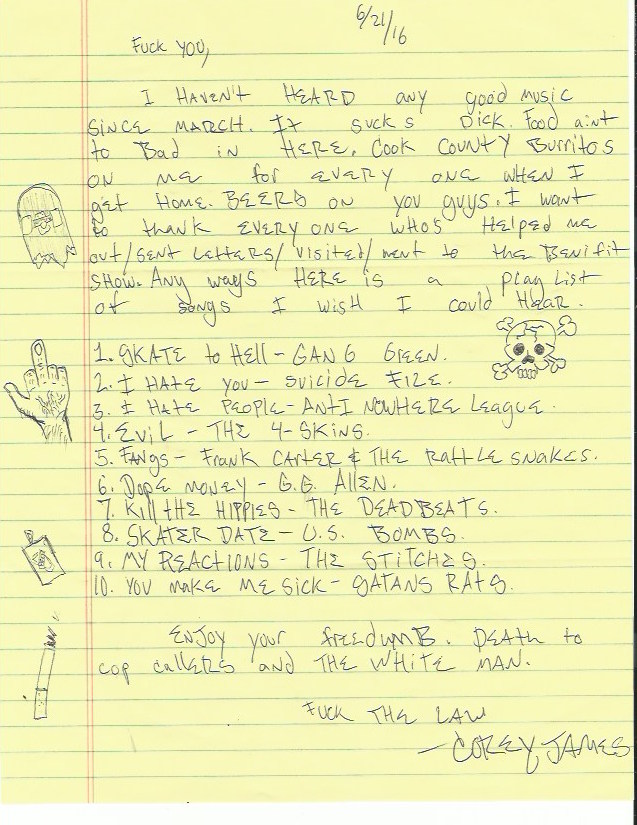 6/21/16
Fuck you,
I HAVEN't HEARD any good music
SINCE MARCH. It sucks Dick. Food aint
to Bad in HERE. Cook County Burritos
on me for EVERY one WHEN I
get Home. BEERS on you guys. I want
to thank EVERY one who's Helped me
out/sent Letters/visited/went to the Benifit
SHOW. Any ways HERE is a Play List
of songs I wish I could Hear.
1. SKATE to Hell - GANG Green.
2. I HATE you - Suicide File.
3. I HATE PEOPLE - ANTI NOWHERE League.
4. Evil - THE 4-SKINS.
5. FANGS - Frank CARTER & THE RattleSnakes.
6. Dope money - G.G. Allen.
7. Kill tHE HIPPIES - THE DEADBEATS.
8. SKATER DATE - U.S. BOMBS.
9. MY REACTIONS - THE STITCHES.
10. You make ME Sick - SATANS RATS.
ENJOY your freedumB. DEATH to
cop callers and THE WHITE MAN.
Fuck THE LAW
- COREY JAMES